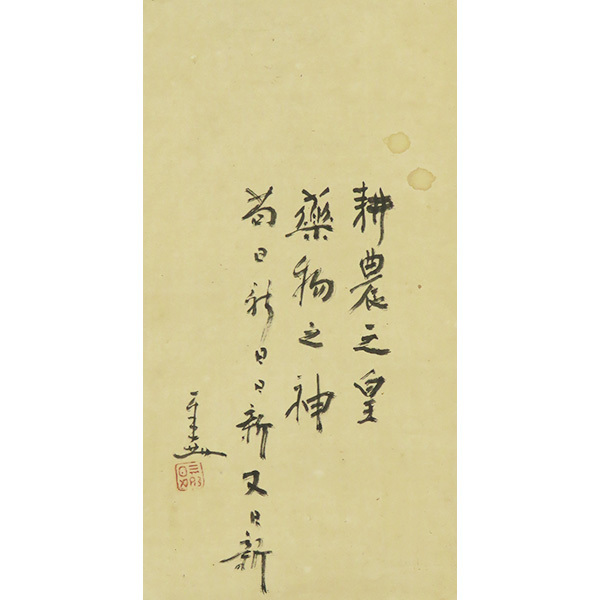 耕農之皇
藥物之神
苟日新日日新又日新